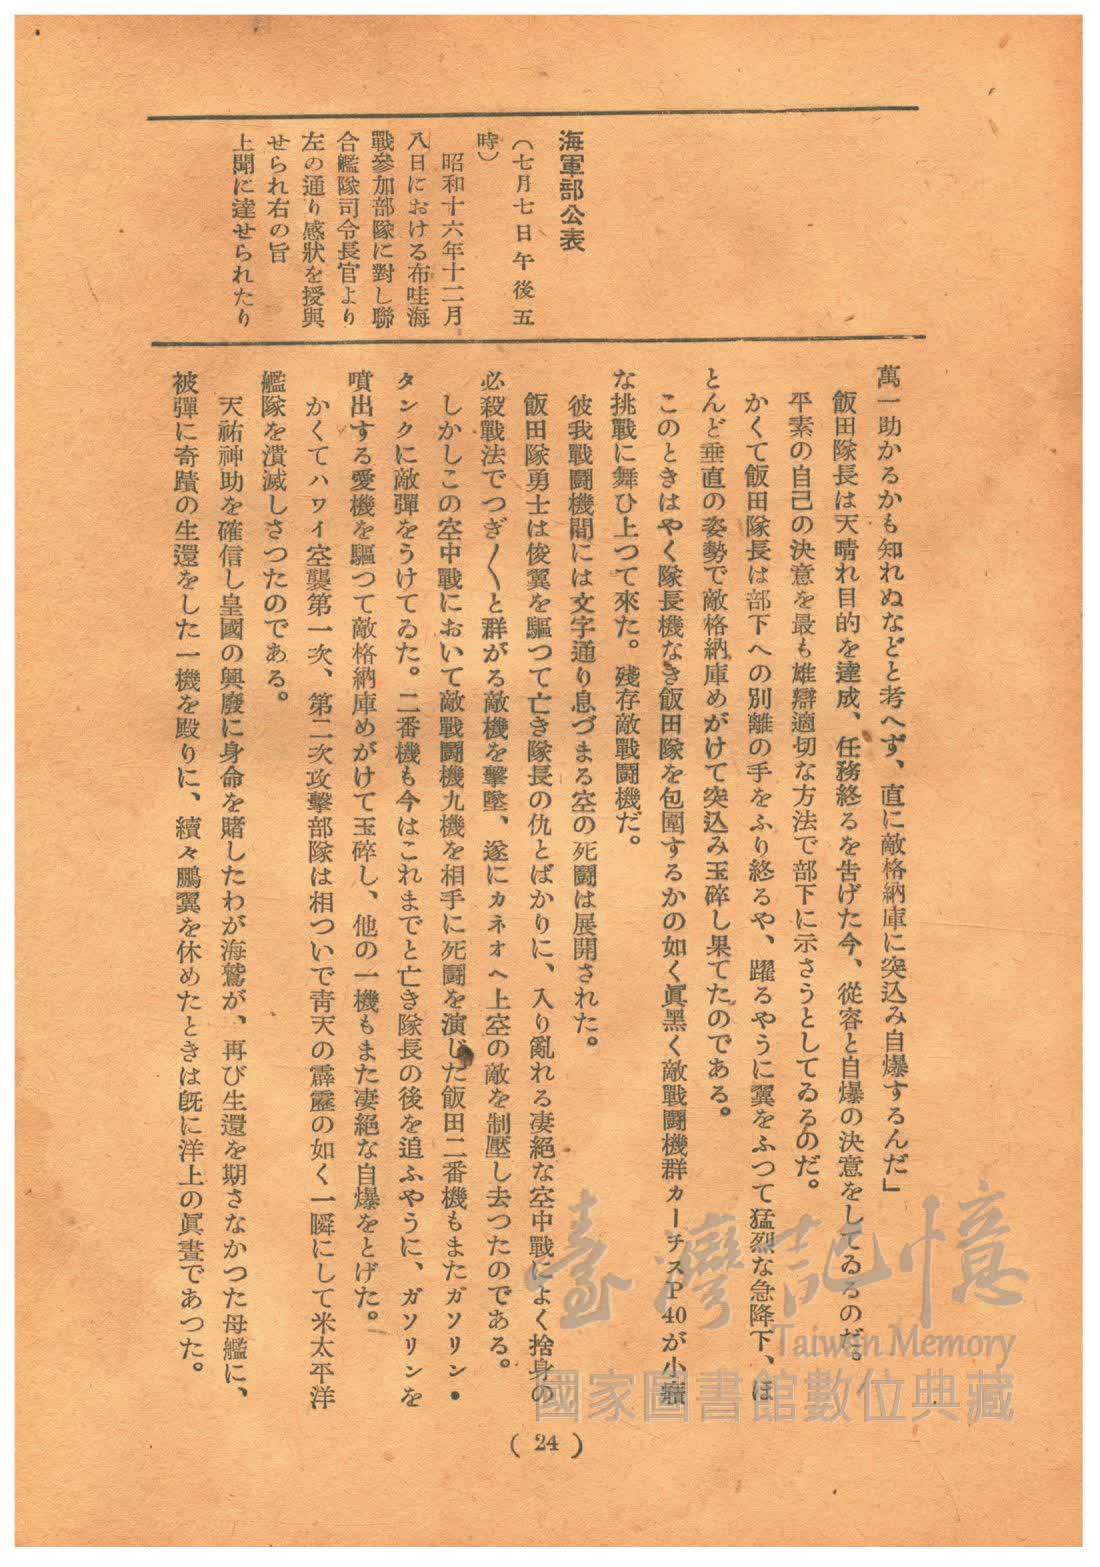 海軍部公表
(七月七日午後五
時)
昭和十六年十二月
八日における布哇海
戰參加部隊に對し聯
合艦隊司令長官より
左の通り感狀を授與
せられ右の旨
上聞に達せられたり
萬一助かるかも知れぬなどと考へず、直に敵格納庫に突込み自爆するんだ」
飯田隊長は天晴れ目的を達成、任務終るを告げた今、從容と自爆の決意をしてゐるのだ。
平素の自己の決意を最も雄辯適切な方法で部下に示さうとしてゐるのだ。
かくて飯田隊長は部下への別離の手をふり終るや、躍るやうに翼をふつて猛烈な急降下、ほ
とんど垂直の姿勢で敵格納庫めがけて突込み玉碎し果てたのである。
このときはやく隊長機なき飯田隊を包圍するかの如く眞黑く敵戰鬪機群カーチスP40が小癪
な挑戰に舞ひ上つて來た。殘存敵戰鬪機だ。
彼我戰鬪機間には文字通り息づまる空の死鬪は展開された。
飯田隊勇士は俊翼を驅つて亡き隊長の仇とばかりに、入り亂れる凄絕な空中戰によく捨身の
必殺戰法でつぎ〱と群がる敵機を擊墜、遂にカネオヘ上空の敵を制壓し去つたのである。
しかしこの空中戰において敵戰鬪機九機を相手に死鬪を演じた飯田二番機もまたガソリン・
タンクに敵彈をうけてゐた。二番機も今はこれまでと亡き隊長の後を追ふやうに、ガソリンを
噴出する愛機を驅つて敵格納庫めがけて玉碎し、他の一機もまた凄絕な自爆をとげた。
かくてハワイ空襲第一次、第二次攻擊部隊は相ついで靑天の霹靂の如く一瞬にして米太平洋
艦隊を潰滅しさつたのである。
天祐神助を確信し皇國の興廢に身命を賭したわが海鷲が、再び生還を期さなかつた母艦に、
被彈に奇蹟の生還をした一機を殿りに、續々鵬翼を休めたときは旣に洋上の眞晝であつた。
(24)
臺灣記憶
Taiwan Memory
國家圖書館數位典藏